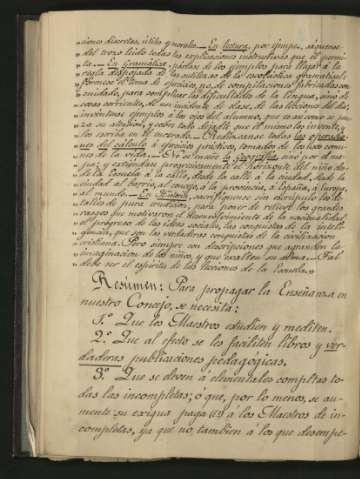 "ciones discretas, útiles y morales. En lectura, por ejemplo, sáquense
"del trozo leído todas las explicaciones instructivas que él permi-
"ta. En Gramática, pártase de los ejemplos para llegar á la
"regla despojada de las sutilezas de la escolástica gramatical;
"fórmese el tema de ejercicios, no de complicaciones fabricadas con
"cuidado, para multiplicar las dificultades de la lengua, sino de
"cosas corrientes, de un incidente de clase, de las lecciones del día;
"invéntense ejemplos á los ojos del alumno, que es así como se pi-
"ca su atención, y sobre todo déjesele que él mismo los invente y
"los escriba en el encerado. Redúzcanse todas las operacio-
"nes del cálculo á ejercicios prácticos, tomados de los usos comu-
"nes de la vida. No se enseñe la Geografía sino por el ma-
"pa, y extiéndase progresivamente el horizonte del niño des-
"de la Escuela á la calle, desde la calle á la ciudad, desde la
"ciudad al barrio, al concejo, á la provincia, á España, á Europa,
"al mundo. En Historia, sacrifíquense sin escrúpulo los de-
"talles de pura erudición, para poner de relieve los grandes
"rasgos que motivaron el desenvolvimiento de la nacionalidad,
"el progreso de las ideas sociales, las conquistas de la inteli-
"gencia, que son las verdaderas conquistas de la civilización
"cristiana. Pero siempre con descripciones que agranden la
"imaginación de los niños, y que exalten su alma. Tal
"debe ser el espíritu de las lecciones de la Escuela."
Resúmen: Para propagar la Enseñanza en
nuestro Concejo, se necesita:
1.º Que los Maestros estudien y mediten.
2.º Que al efecto se les faciliten libros y ver-
daderas publicaciones pedagógicas.
3.º Que se eleven á elementales completas to-
das las incompletas; ó que, por lo menos, se au-
mente su exigua paga (13) á los Maestros de in-
completas, ya que no, tambien á los que desempe-